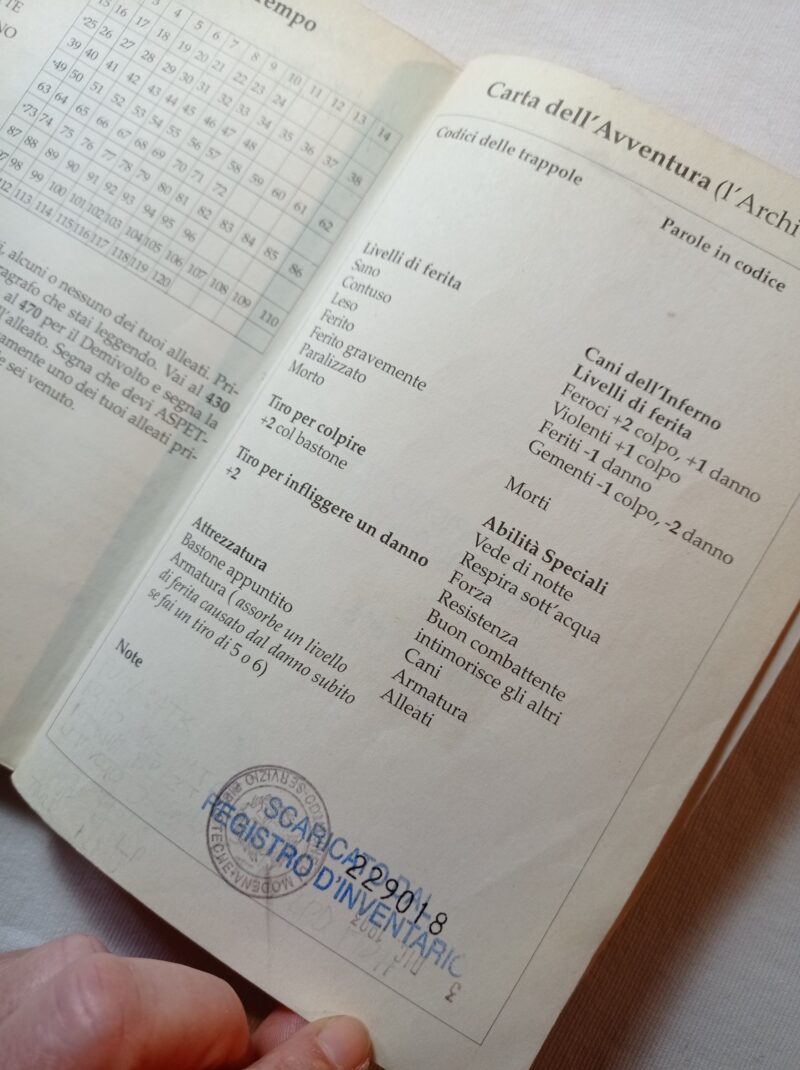 Tempo
TTE
NO
15 16 3 4 5 6 7 8 9 10 11 12 13 14
25 26 17 18 19 20 21 22 23 24
39 40 27 28 29 30 31 32 33 34 35 36 37 38
49 50 41 42 43 44 45 46 47 48
63 64 51 52 53 54 55 56 57 58 59 60 61 62
73 74 65 66 67 68 69 70 71 72
87 88 75 76 77 78 79 80 81 82 83 84 85 86
97 98 89 90 91 92 93 94 95 96
112 113 99 100 101 102 103 104 105 106 107 108 109 110
114 115 116 117 118 119 120
i, alcuni o nessuno dei tuoi alleati. Pri-
ragrafo che stai leggendo. Vai al 430
al 470 per il Demivolto e segna la
l'alleato. Segna che devi ASPET-
vamente uno dei tuoi alleati pri-
e sei venuto.
Carta dell'Avventura (l'Archi
Codici delle trappole
Parole in codice
Livelli di ferita
Sano
Contuso
Leso
Ferito
Ferito gravemente
Paralizzato
Morto
Tiro per colpire
+2 col bastone
Tiro per infliggere un danno
+2
Attrezzatura
Bastone appuntito
Armatura ( assorbe un livello
di ferita causato dal danno subito
se fai un tiro di 5 o 6)
Note
Cani dell'Inferno
Livelli di ferita
Feroci +2 colpo, +1 danno
Violenti +1 colpo
Feriti -1 danno
Gementi -1 colpo, -2 danno
Morti
Abilità Speciali
Vede di notte
Respira sott'acqua
Forza
Resistenza
Buon combattente
intimorisce gli altri
Cani
Armatura
Alleati
SCARICATO DAL
REGISTRO D'INVENTARIO
229018
MODENA